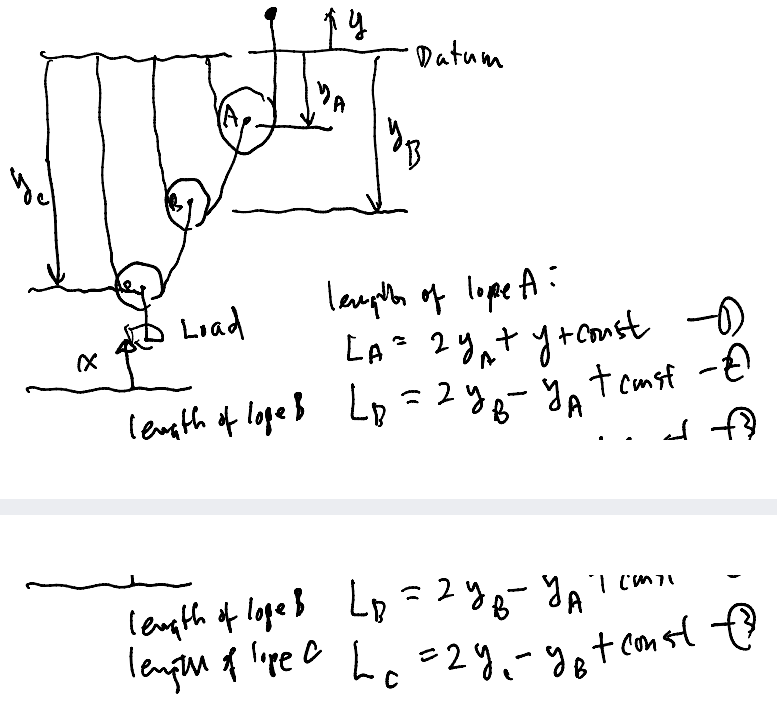 y
Datum
A
y_A
y_B
B
y_c
c
Load
x
length of lope A:
L_A = 2y_A + y + const —①
length of lope B L_B = 2y_B - y_A + const —②
③
length of lope B L_B = 2y_B - y_A
length of lope C L_C = 2y_c - y_B + const —③